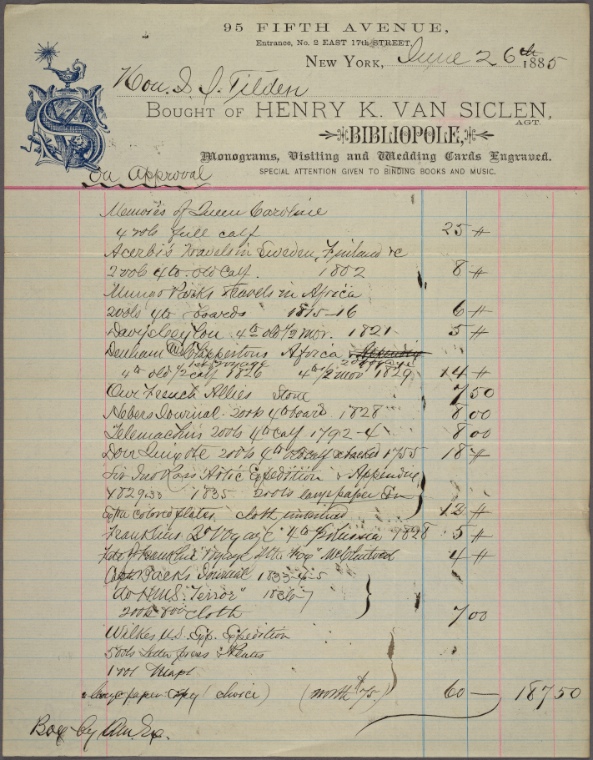 95 FIFTH AVENUE,
Entrance, No. 2 EAST 17th STREET,
NEW YORK, June 26th 1885
Hon. S. J. Tilden
BOUGHT OF HENRY K. VAN SICLEN,
AGT.
BIBLIOPOLE,
Monograms, Visiting and Wedding Cards Engraved.
SPECIAL ATTENTION GIVEN TO BINDING BOOKS AND MUSIC.
On Approval
Memoirs of Queen Caroline
4 vols full calf 25 #
Acerbi's Travels in Sweden, Finland &c
2 vols 4to. old Calf. 1802 8 #
Mungo Parks travels in Africa
2 vols 4to boards 1815-16 6 #
Davy's Ceylon 4to old 1/2 mor. 1821 5 #
Denham & Clappertons Africa
1st voyage 2d voyage
4to old 1/2 calf 1826 4to 1/2 mor 1829 14 #
Our French Allies Stone 7 50
Hebers Journal 2 vols 4to board 1828 8 00
Telemachus 2 vols 4to calf 1792-4 8 00
Don Quixote 2 vols 4to old calf 1755 18 #
Sir Jno Ross' Artic Expedition & Appendix
1829-33 1835 2 vols large paper
colored plates cloth 12 #
Franklins 2d Voyage 4to 1828 5 #
4 #
Capt Backs Journal 1833-4-5
do H.M.S. "Terror" 1836-7
2 vols 8vo cloth 7 00
Wilkes U.S. Exp. Expedition
5 vols Letter press & Plates
1 vol Maps
large paper copy (choice) (worth $75) 60 — 187 50
Box by Am Ex.